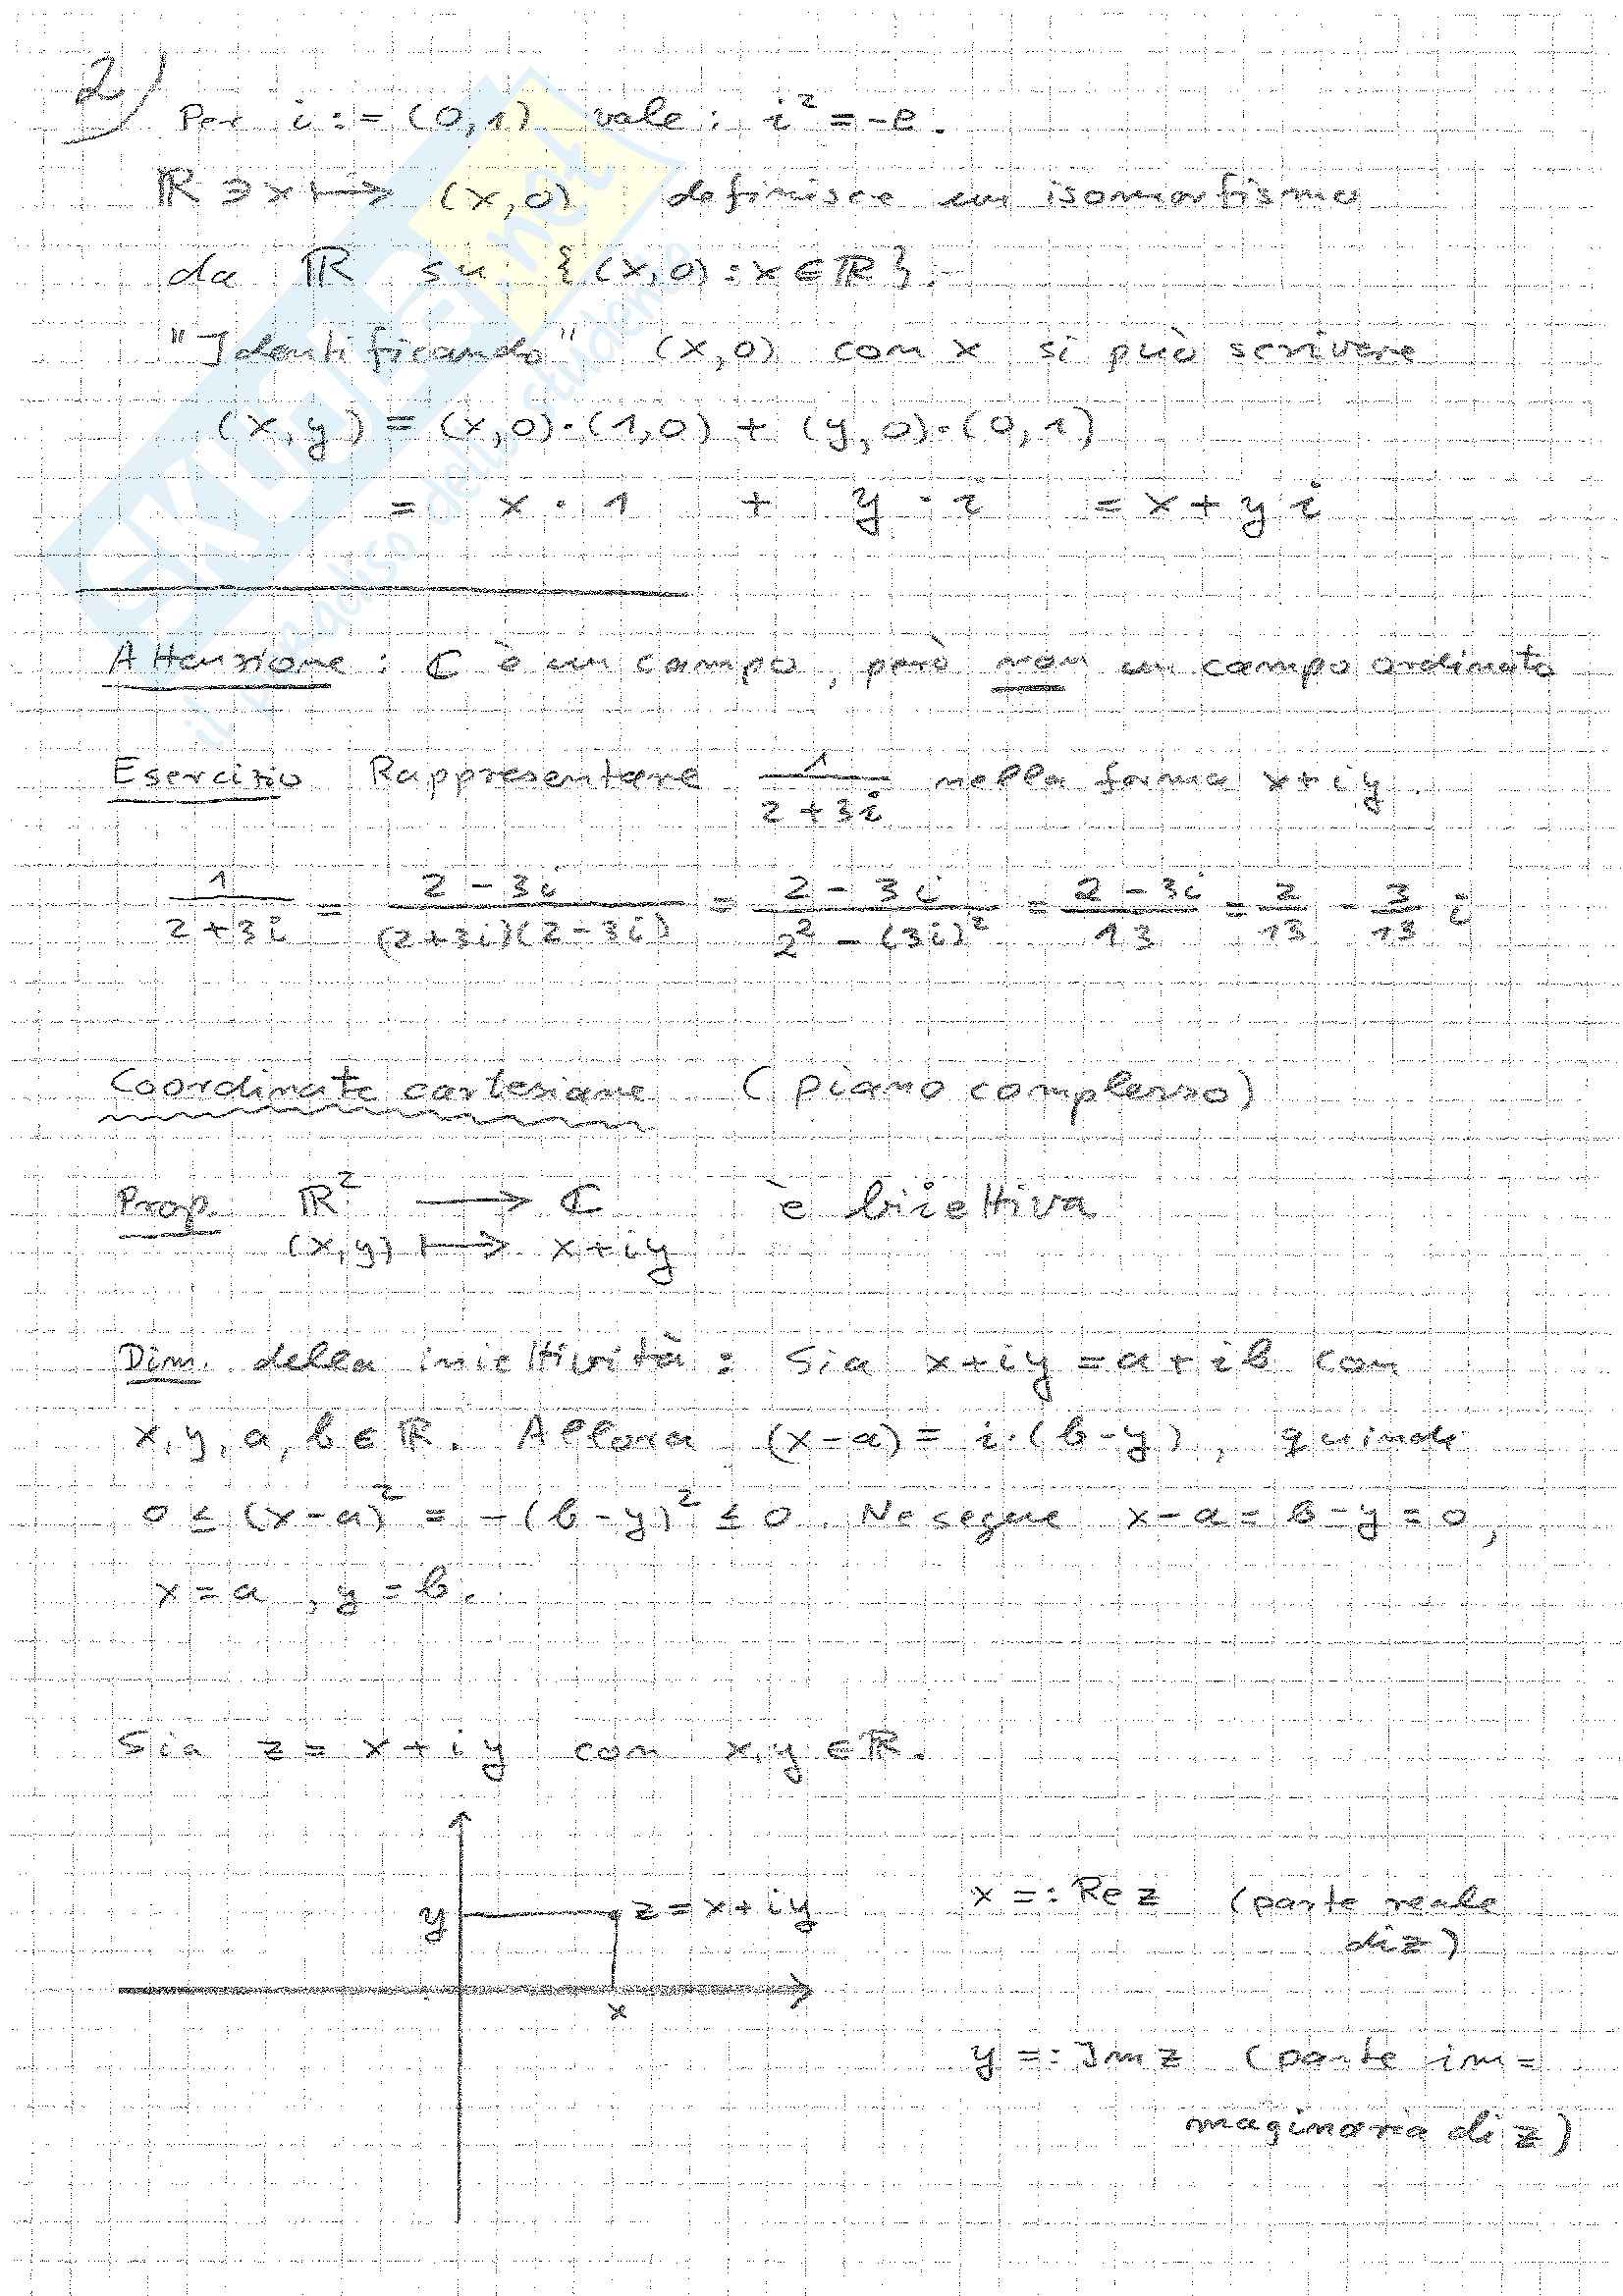 2)
Per i := (0,1) vale: i² = -e.
ℝ ∋ x ↦ (x,0) definisce un isomorfismo
da ℝ su {(x,0) : x ∈ ℝ}.
"Identificando" (x,0) con x si può scrivere
(x,y) = (x,0)·(1,0) + (y,0)·(0,1)
= x · 1 + y · i = x + y i
Attenzione: ℂ è un campo, però non un campo ordinato
Esercizio Rappresentare 1/(2+3i) nella forma x+iy.
1/(2+3i) = (2-3i)/((2+3i)(2-3i)) = (2-3i)/(2²-(3i)²) = (2-3i)/13 = 2/13 - 3/13 i
Coordinate cartesiane (piano complesso)
Prop. ℝ² → ℂ è biiettiva
(x,y) ↦ x+iy
Dim. della iniettività: Sia x+iy = a+ib con
x,y,a,b ∈ ℝ. Allora (x-a) = i·(b-y), quindi
0 ≤ (x-a)² = -(b-y)² ≤ 0. Ne segue x-a = b-y = 0,
x = a, y = b.
Sia z = x+iy con x,y ∈ ℝ.
y z = x+iy
x
x =: Re z (parte reale
di z)
y =: Im z (parte im=
maginaria di z)
SKUOLA.net
il paradiso dello studente